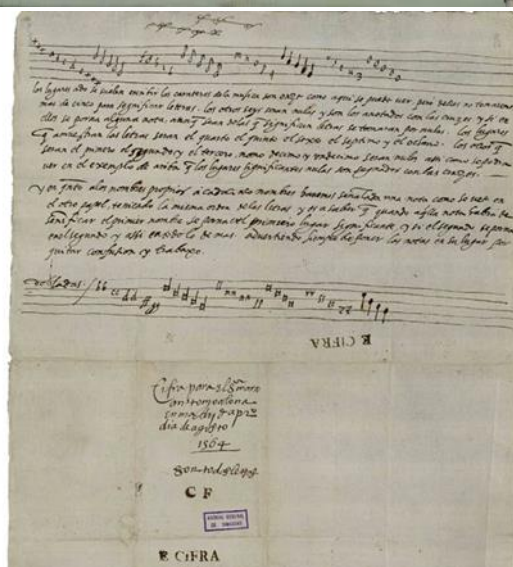 los lugares ado se suelen escrivir los caracteres dela musica son onze como aqui se puede ver pero dellos no tomaremos
mas de cinco para significar letras. los otros seys seran nulos y son los anotados con las cruzes y si en
ellos se porna alguna nota, aunq sean delas q significan letras se tomaran por nulas. los lugares
q amuestran las letras seran el quarto el quinto el sexto el septimo y el octavo. los otros q
seran el primero el segundo y el tercero, nono decimo y undecimo seran nulos assi como se podra
ver en el exemplo de arriba q los lugares significantes nulos son segnados con las cruzes.
y en qnto alos nombres propios a cada nombre havemos señalado una nota como se vee en
el otro papel, teniendo la misma orden de las letras y es a saber q quando aqlla nota habra de
significar el primer nombre se porna en el primero lugar significante, y si el segundo se porna
en el segundo y assi en todo lo demas. advertiendo siempre de poner las notas en su lugar por
quitar confusion y trabaxo.
E CIFRA
Cifra para el
dia de agosto
1564
C F
ARCHIVO GENERAL
DE SIMANCAS
E CIFRA